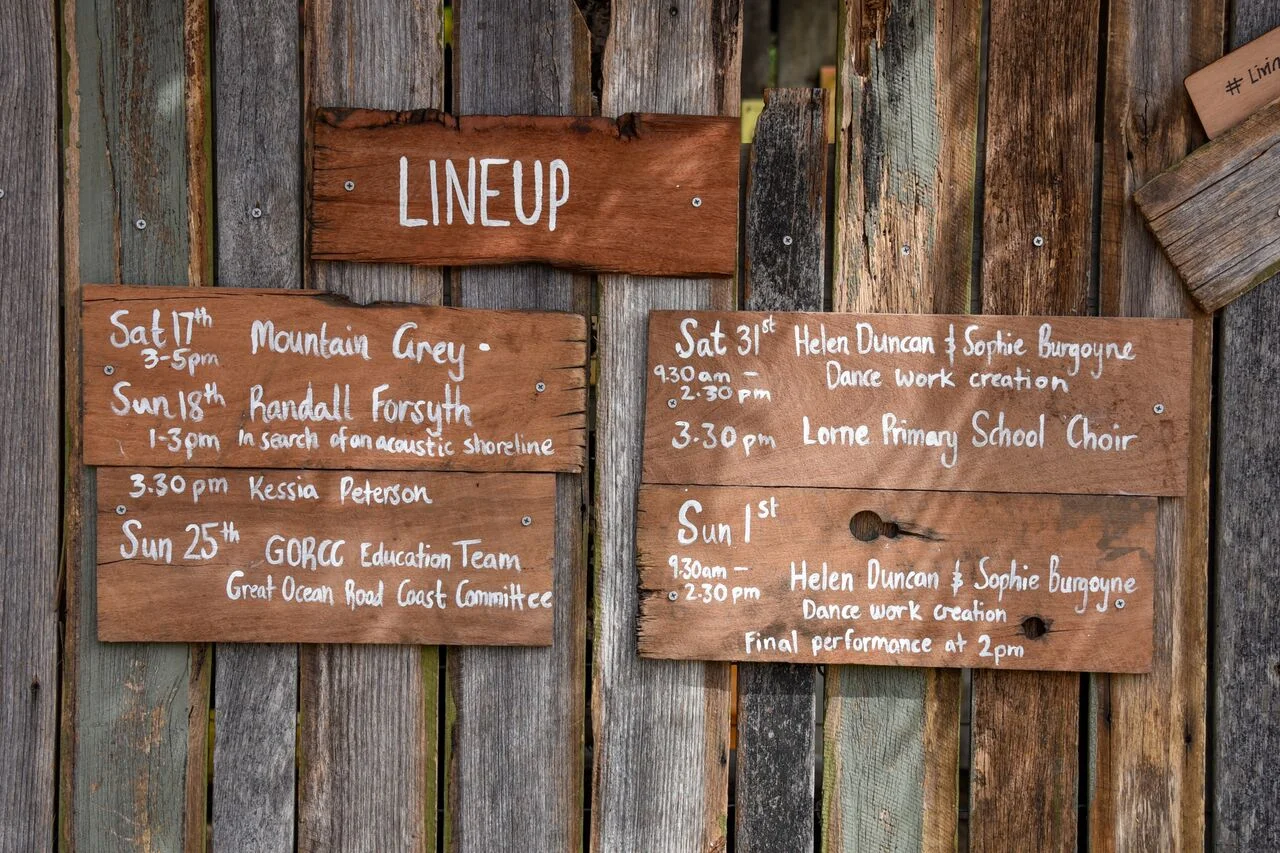 LINEUP
Sat 17th Mountain Grey.
3-5pm
Sun 18th Randall Forsyth
1-3pm In search of an acoustic shoreline
3.30 pm Kessia Peterson
Sun 25th GORCC Education Team
Great Ocean Road Coast Committee
Sat 31st Helen Duncan & Sophie Burgoyne
9.30 am - Dance work creation
2.30 pm
3.30 pm Lorne Primary School Choir
Sun 1st
9.30am - Helen Duncan & Sophie Burgoyne
2.30 pm
Dance work creation
Final performance at 2pm
#